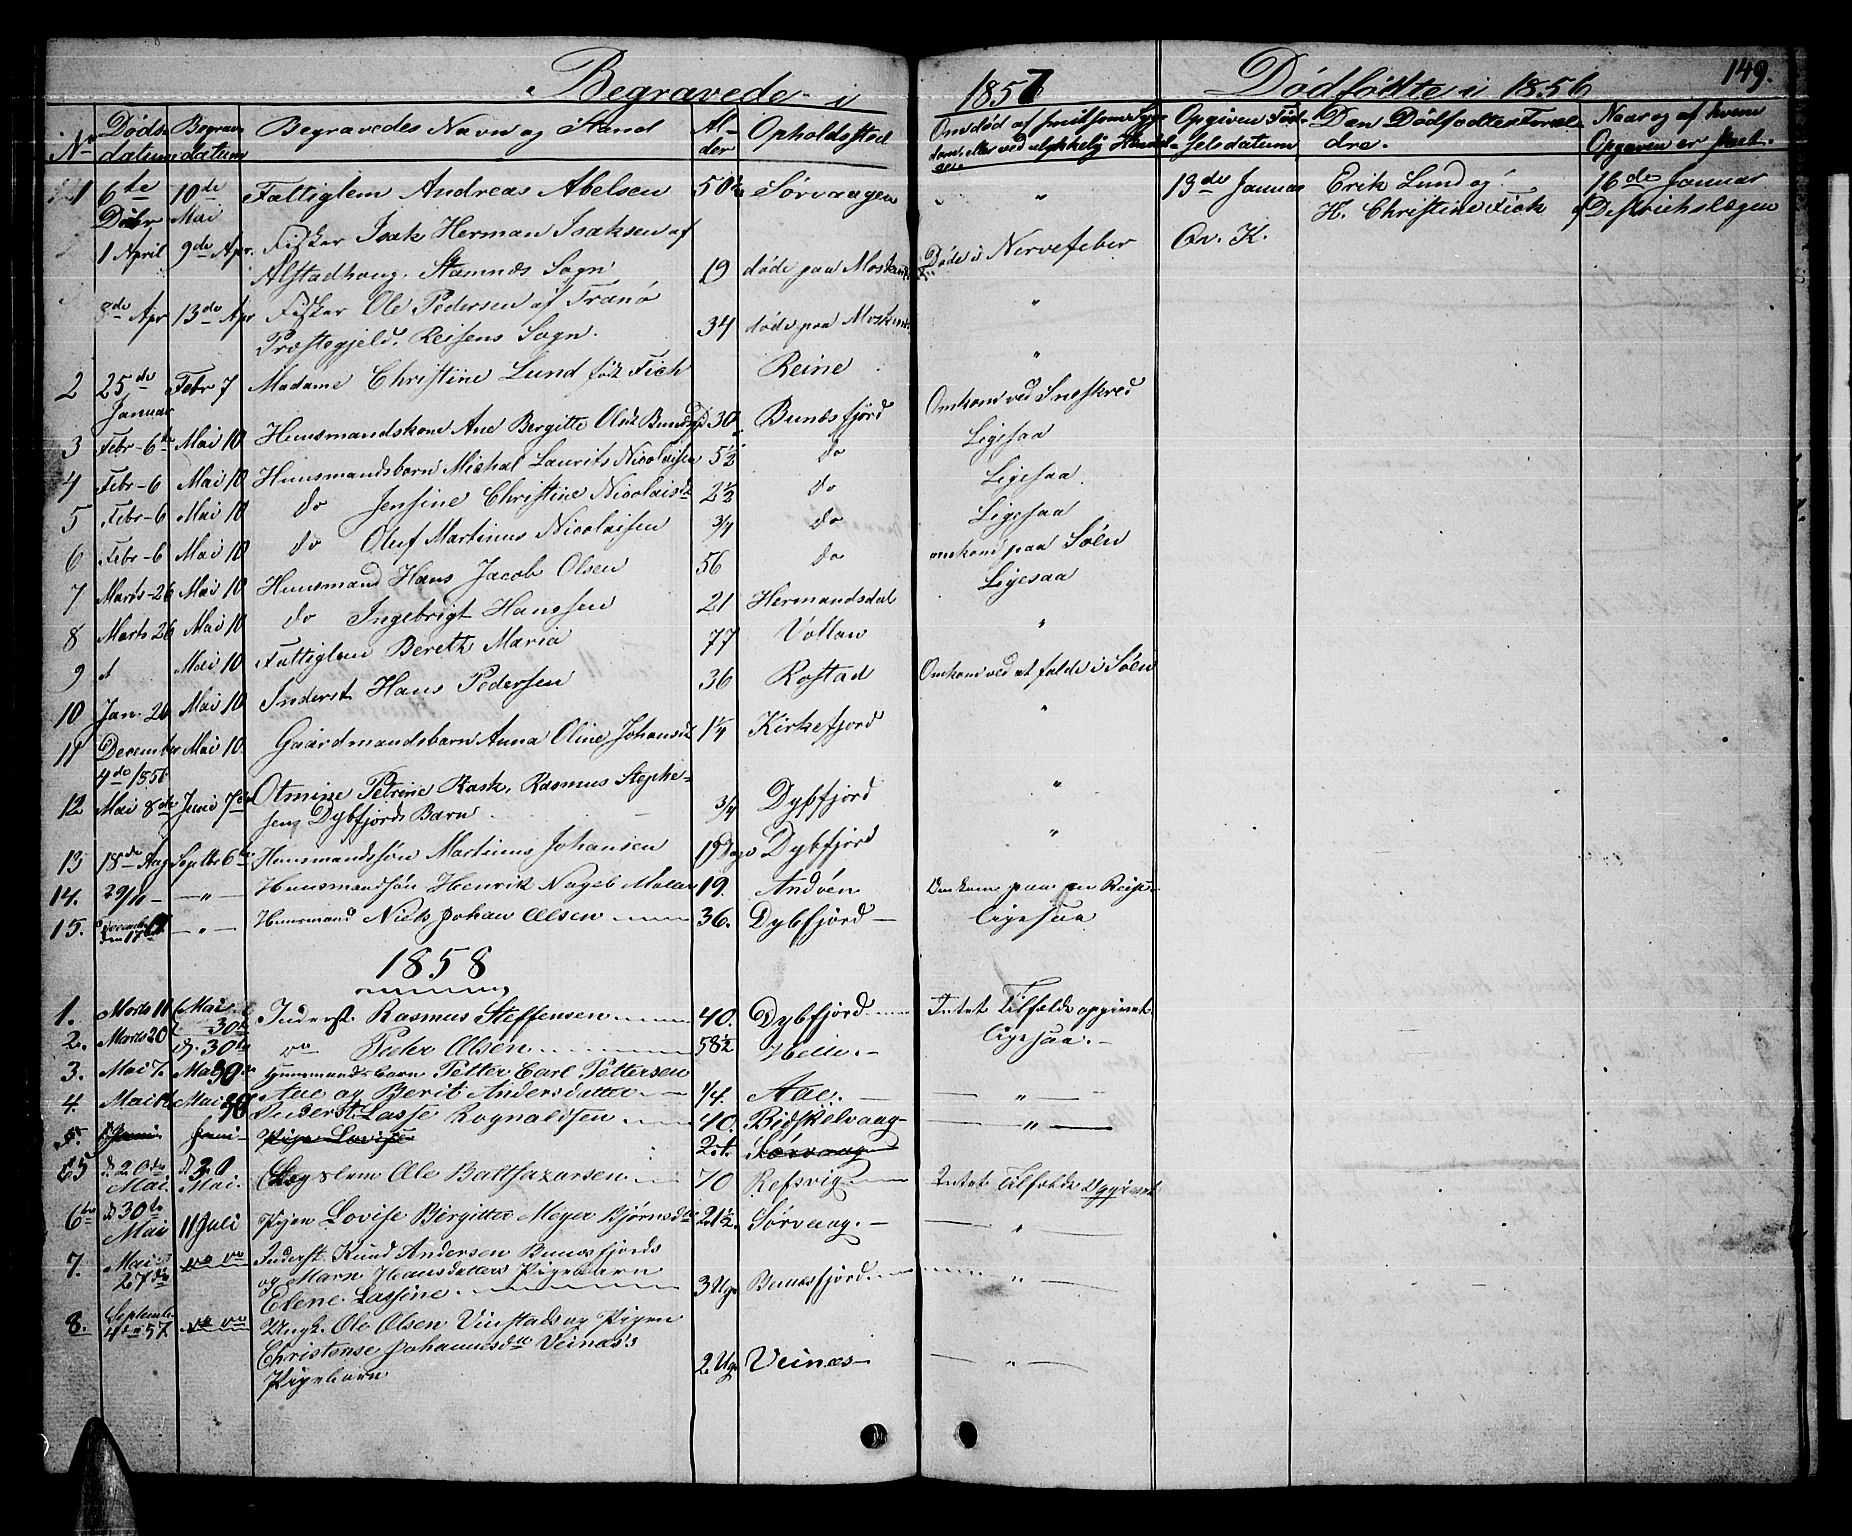 Begravede i 1857 Dødfødte i 1856 149.
No Døds datum Begrav datum Begravedes Navn og Stand Alder Opholdssted Om død af smitsom Syge dom eller ved ulykkelig Hændelse Opgiven Fødselsdatum Den Dødfødtes Forældre. Naar og af hvem Opgaven er skeet.
1 6te Decbr 10de Mai Fattiglem Andreas Abelsen 50 Sørvaagen " 13de Januar Erik Lund og H. Christine Fick 16de Januar af Destrichslægen
1 April 9de Apr. Fisker Isak Herman Isaksen af
Alstadhoug, Stamnæs Sogn 19 døde paa Moskenæs Døde i Nervefeber Qv. K.
8de Apr 13de Apr Fisker Ole Pedersen af Tranø
Præstegjeld, Reisens Sogn. 34 døde paa Moskenæs "
2 25de Januar Febr 7 Madame Christine Lund født Fich Reine "
3 Febr-6te Mai 10 Huusmandskone Ane Bergitte Olsdt 30 Bunæsfjord Omkom ved Sneskred
4 Febr-6 Mai 10 Huusmandsbarn Michal Laurits Nicolaisen 5½ do Ligesaa
5 Febr-6 Mai 10 do Jensine Christine Nicolaisdt 2½ do Ligesaa.
6 Febr-6 Mai 10 do Oluf Martinus Nicolaisen 3/4 do Ligesaa
7 Marts-26 Mai 10 Huusmand Hans Jacob Olsen 56 do omkom paa Søen
8 Marts 26 Mai 10 do Ingebrigt Hanssen 21 Hermandsdal Ligesaa
9 Mai 10 Fattiglem Bereth Maria 77 Vottan "
10 Jan. 26 Mai 10 Inderst Hans Pedersen 36 Rostad Omkom ved at falde i Søen
11 December 4de 1856 Mai 10. Gaardmandsbarn Anna Oline Johansdt 1¼ Kirkefjord "
12 Mai 8de Juni 7de Otmine Petrine Rask, Rasmus Stephe-
sens Dybfjords Barn 3/4 Dybfjord "
13 18de Aug Septbr 6te Huusmandssøn Martinus Johansen 19 Dage Dybfjord "
14. 29/11 - - " - Huusmandsøn Henrik Nageb 19. Andøen Omkom paa en Reise-
15. December den 17de - " - Huusmand Niels Johan Olsen 36. Dybfjord - Ligesaa
1858
1. Marts 11 Mai 30te Inderst. Rasmus Steffensen 40. Dybfjord Intet Tilfælde opgivet.
2. Marts 20 d. 30te do Peder Olsen 58½ Helle. - Ligesaa. -
3. Mai 7. Mai 30te Huusmandsbarn Petter Carl Pettersen
4. Mai Mai Ane og Berit Andersdatter 1/4. Aae. - - " -
Inderst. Lasse Rognaldsen 40. Bidskelvaag- - " -
5. Juni Juni- Pige Lovise 21. Sørvaag
5 d 20de Mai. d 30 Mai. Lægslem Ole Balthazarsen 70 Refsvig Intet Tilfælde Opgivet
6te d 30te Mai 11 Juli Pigen Lovise Birgitte Meyer Bjørnsdr 21½. Sørvaag. - - " -
7. Mai 27de do do Inderst. Knud Andersen Bunesfjords
og Marn Hansdatters Pigebarn
Elene Lassine 3 Ug. Bunesfjord. - " -
8. Septemb. 4de 57 do do Ungk. Ole Olsen Vinstads og Pigen
Christense Johannesdr Veinæs's
Pigebarn 2 Ug. Veinæs - - " -